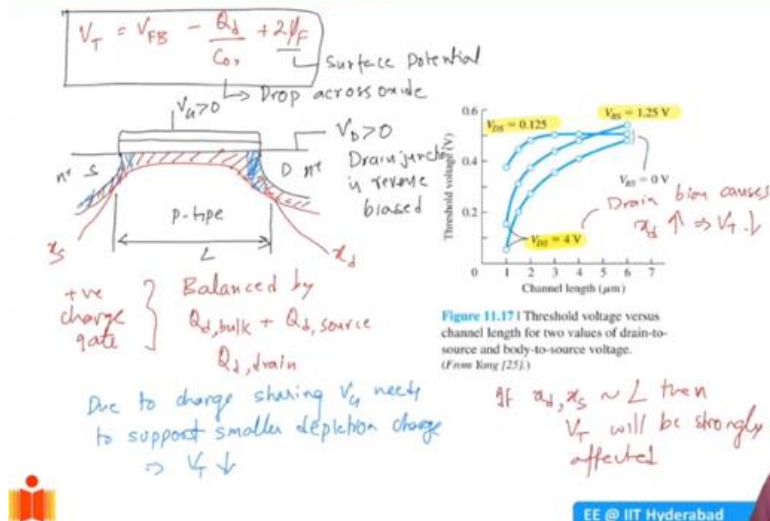 V_T = V_FB - Q_d/C_ox + 2φ_F
Surface Potential
Drop across oxide
V_G>0
V_D>0
Drain junction
is reverse
biased
n+ S
D n+
p-type
L
x_s
x_d
+ve
charge
gate
Balanced by
Q_d,bulk + Q_d,source
Q_d,drain
Due to charge sharing V_G needs
to support smaller depletion charge
⇒ V_T ↓
Threshold voltage (V)
0.6
0.4
0.2
0
1 2 3 4 5 6 7
Channel length (μm)
V_DS = 0.125
V_BS = 1.25 V
V_BS = 0 V
V_DS = 4 V
Drain bias causes
x_d ↑ ⇒ V_T ↓
Figure 11.17 | Threshold voltage versus
channel length for two values of drain-to-
source and body-to-source voltage.
(From Yang [25].)
If x_d, x_s ~ L then
V_T will be strongly
affected
EE @ IIT Hyderabad